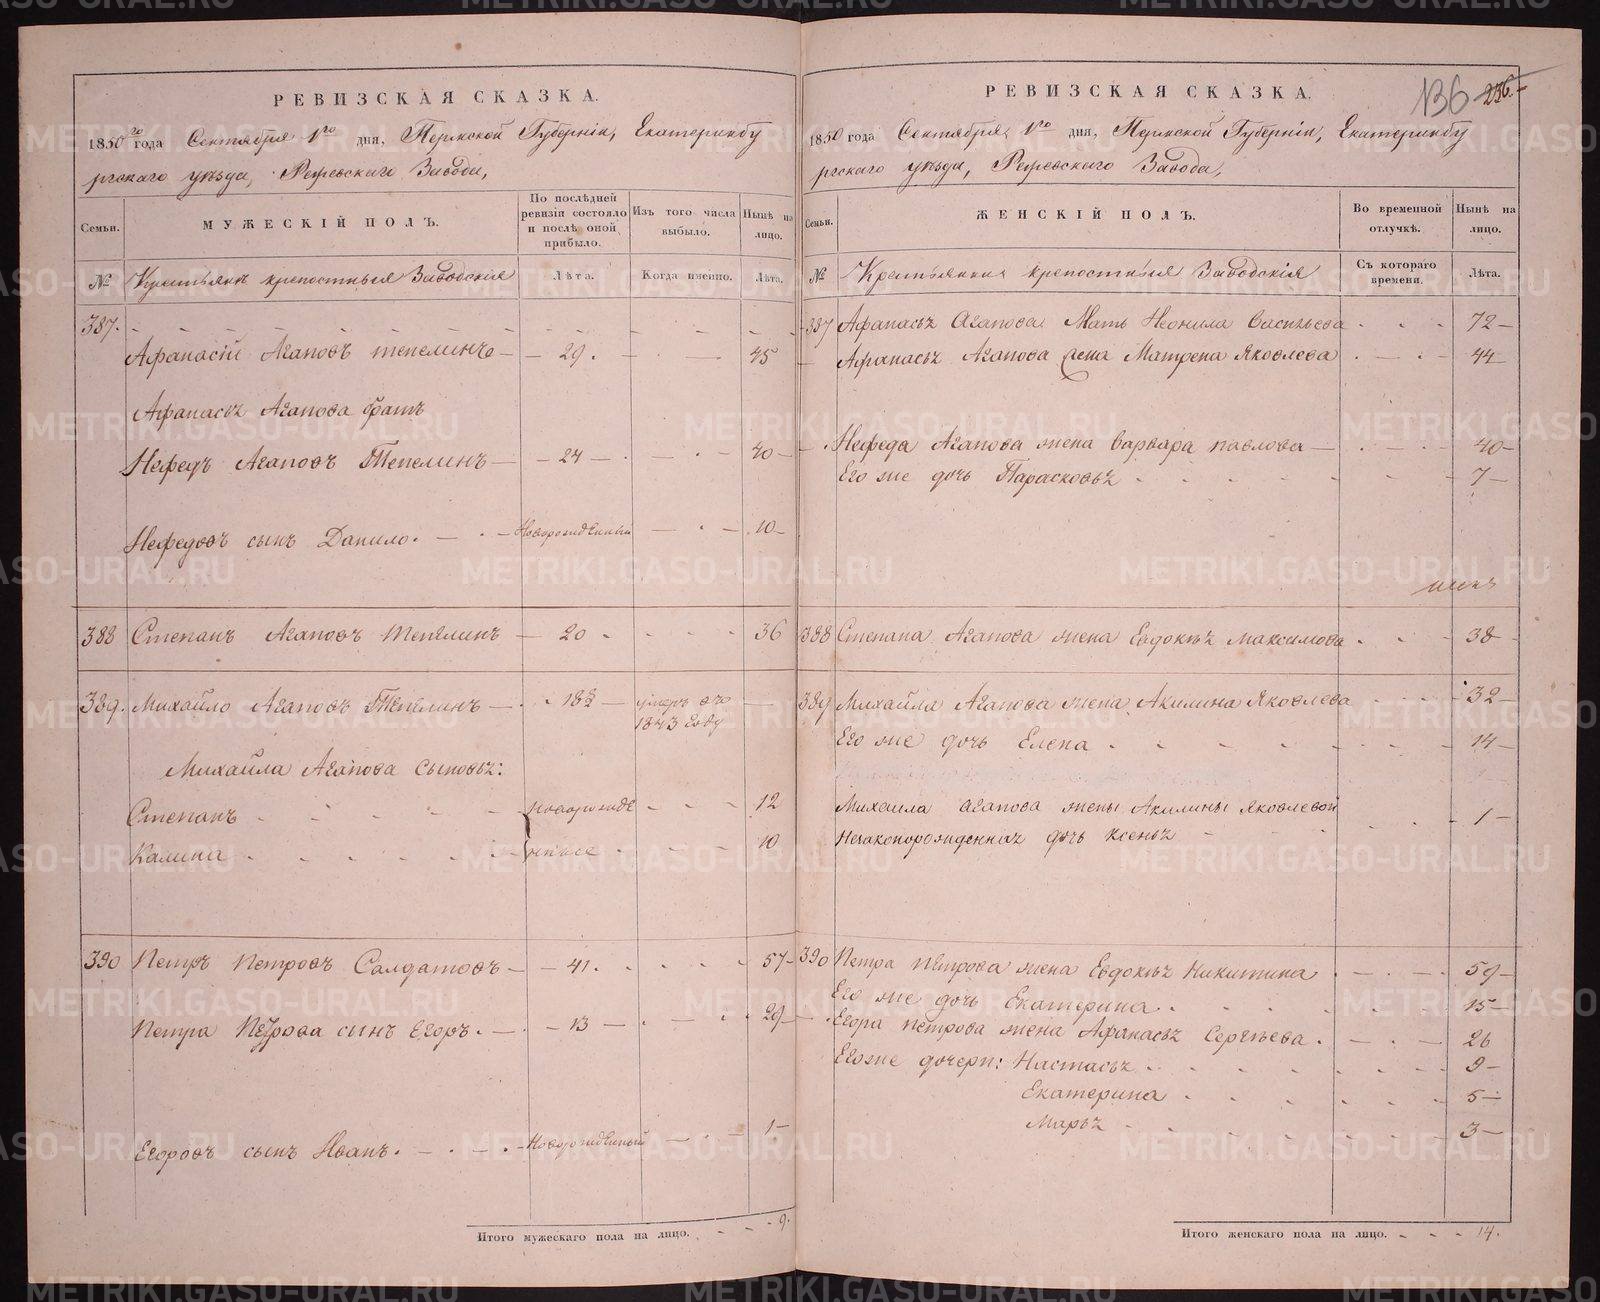 РЕВИЗСКАЯ СКАЗКА.
1850го года Сентября 1го дня, Пермской Губернiи, Екатеринбу
ргскаго уѣзда, Режевскаго Завода,
Семьи.
МУЖЕСКIЙ ПОЛЪ.
По послѣдней ревизiи состояло и послѣ оной прибыло.
Изъ того числа выбыло.
Нынѣ на лицо.
№
Крестьянъ крепостныя Заводскiя
Лѣта.
Когда именно.
Лѣта.
387.
Афанасiй Агаповъ Тепелинъ 29. 45
Афанасья Агапова братъ
Нефедъ Агаповъ Тепелинъ 24 40
Нефедовъ сынъ Данило. Новорожденный 10
388 Степанъ Агаповъ Тепелинъ 20 36
389. Михайло Агаповъ Тепелинъ умеръ въ
1843 году
Михайла Агапова сыновья:
Степанъ новорожде 12
Калина нные 10
390 Петръ Петровъ Салдатовъ 41. 57
Петра Петрова сынъ Егоръ. 13 29
Егоровъ сынъ Иванъ. Новорожденный 1
Итого мужескаго пола на лицо. 9.
136 236.
РЕВИЗСКАЯ СКАЗКА.
1850 года Сентября, 1го дня, Пермской Губернiи, Екатеринбу
ргскаго уѣзда, Режевскаго Завода,
Семьи.
ЖЕНСКIЙ ПОЛЪ.
Во временной отлучкѣ.
Нынѣ на лицо.
№
Крестьянки крепостныя Заводскiя
Съ котораго времени.
Лѣта.
387 Афанасья Агапова Мать Неонила Васильева 72
Афанасья Агапова жена Матрена Яковлева 44
Нефеда Агапова жена Варвара Павлова 40
Его же дочь Парасковья 7
388 Степана Агапова жена Евдокья Максимова 38
389 Михайла Агапова жена Акилина Яковлева 32
Его же дочь Елена 14
Михаила Агапова жены Акилины Яковлевой
Незаконорожденная дочь Ксенья 1
390 Петра Петрова жена Евдокья Никитина 59
Его же дочь Екатерина 15
Егора Петрова жена Афанасья Сергѣева 26
Его же дочери: Настасья 9
Екатерина 5
Марья 3
Итого женскаго пола на лицо. 14.
METRIKI.GASO-URAL.RU